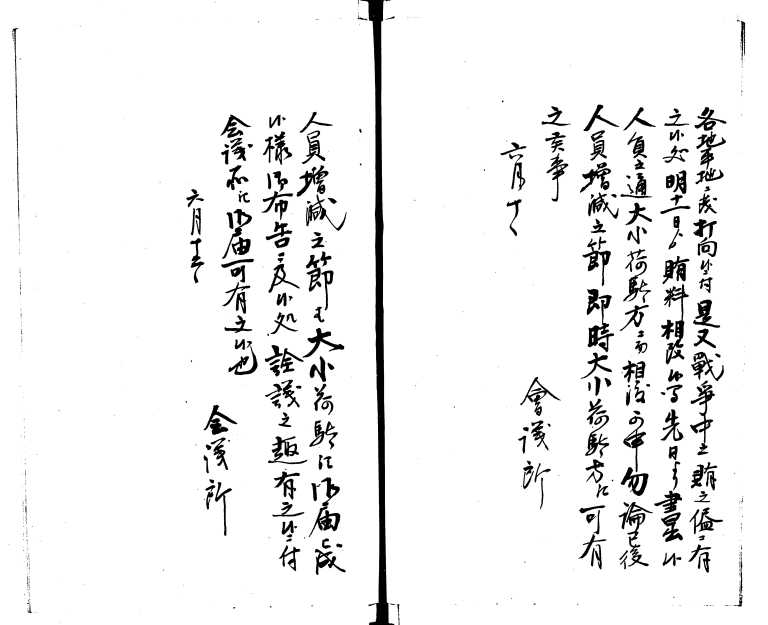 各地平地ニ成打向候付是又戦争中之賄之儘ニ有
之候処明十一日ゟ賄料相改候間先日ゟ書出候
人員之通大小荷駄方ニ而相渡可申勿論已後
人員増減之節即時大小荷駄方江可有
之候事
六月十日
會議所
人員増減之節も大小荷駄江御届成
候様御布告ニ及候処詮議之趣有之候ニ付
会議所江御届可有之候也
六月十二日
会議所